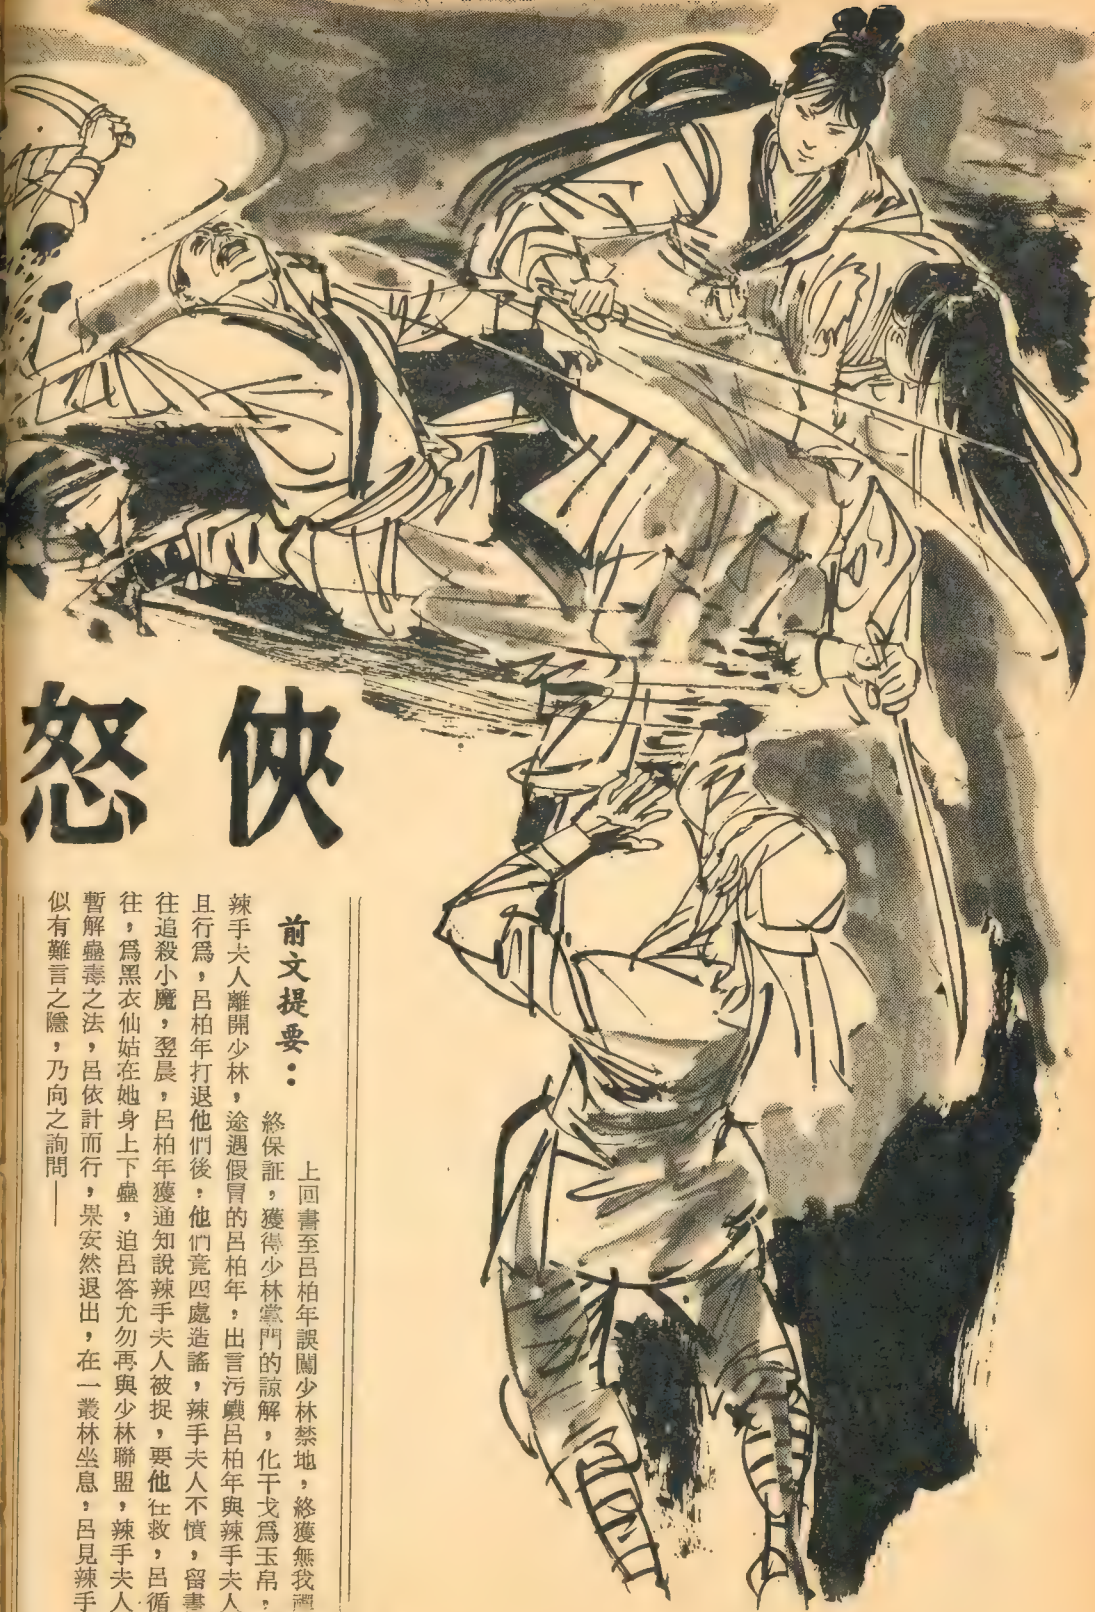 俠怒
前文提要：
上回書至呂柏年誤闖少林禁地，終獲無我禪
終保証，獲得少林掌門的諒解，化干戈爲玉帛，
辣手夫人離開少林，途遇假冒的呂柏年，出言污衊呂柏年與辣手夫人
且行爲，呂柏年打退他們後，他們竟四處造謠，辣手夫人不憤，留書
往追殺小魔，翌晨，呂柏年獲通知說辣手夫人被捉，要他往救，呂循
往，爲黑衣仙姑在她身上下蠱，迫呂答允勿再與少林聯盟，辣手夫人
暫解蠱毒之法，呂依計而行，果安然退出，在一叢林坐息，呂見辣手
似有難言之隱，乃向之詢問——